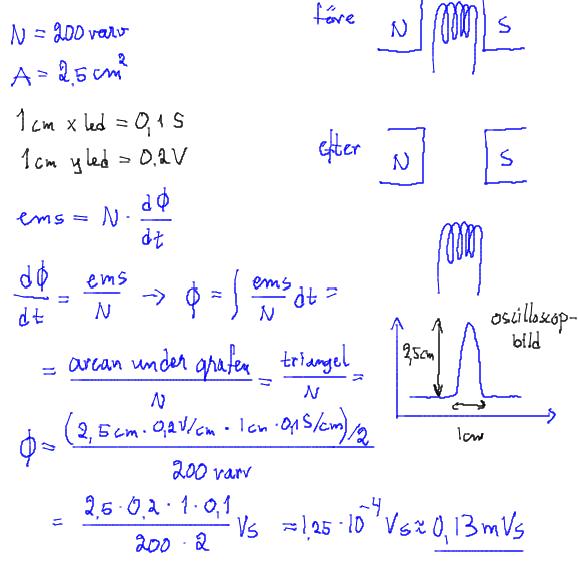 N = 200 varv
A = 2,5 cm²
1 cm x led = 0,1 S
1 cm y led = 0.2V
ems = N · dϕ/dt
dϕ/dt = ems/N → ϕ = ∫ ems/N dt =
= arean under grafen/N = triangel/N =
ϕ = (2,5 cm · 0,2V/cm · 1 cm · 0,1 S/cm)/2 / 200 varv
= 2,5 · 0,2 · 1 · 0,1 / 200 · 2 Vs = 1,25 · 10⁻⁴ Vs ≈ 0,13 mVs
före
N S
efter
N S
oscilloscop-
bild
2,5cm
1cm